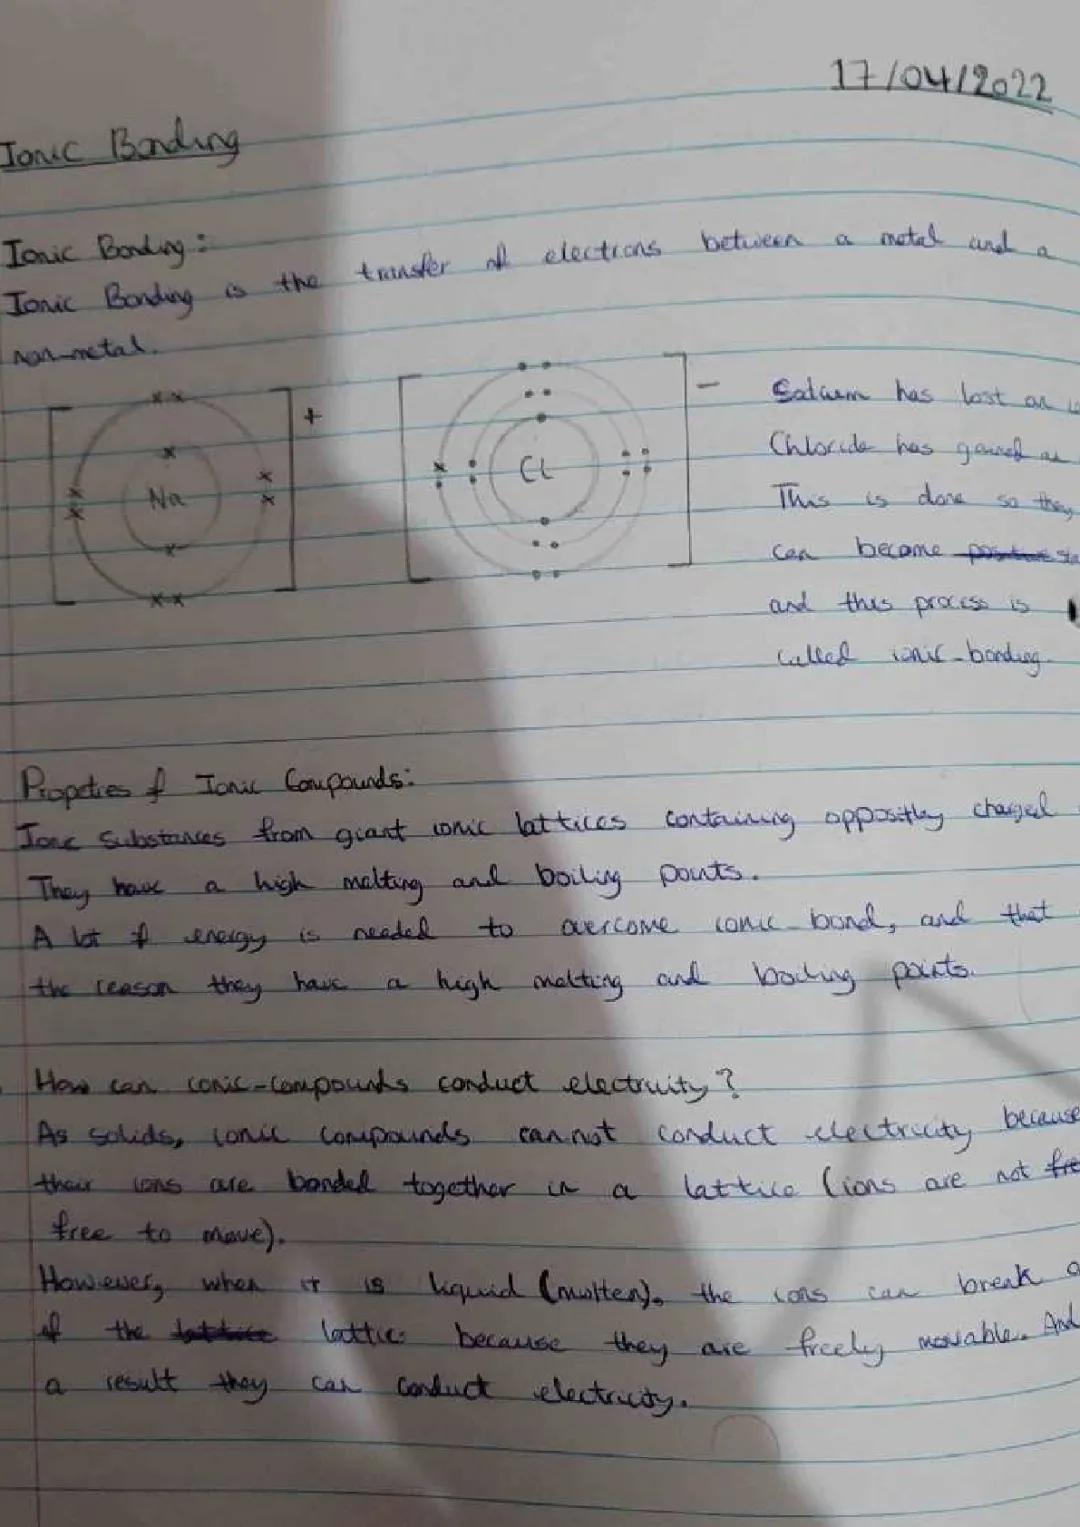 17/04/2022
Ionic Bonding
Ionic Bonding:
Ionic Bonding is the transfer of electrons between a metal and a
non-metal.
+
-
Na
Cl
has lost an
Chloride has gained
This is done so they
can become
and this process is
called ionic-bonding.
Propeties of Ionic Compounds:
Substances from giant ionic lattices containing oppositly charged
They have a high malting and boiling points.
A lot of energy is needed to overcome ionic bond, and that
the reason they have a high malting and boiling points.
How can ionic-compounds conduct electricity?
As solids, ionic compounds cannot conduct electricity because
their ions are bonded together in a lattice (ions are not fre
free to move).
However, when it is liquid (molten). the ions can break
of the lattice lattice because they are freely movable. And
a result they can conduct electricity.